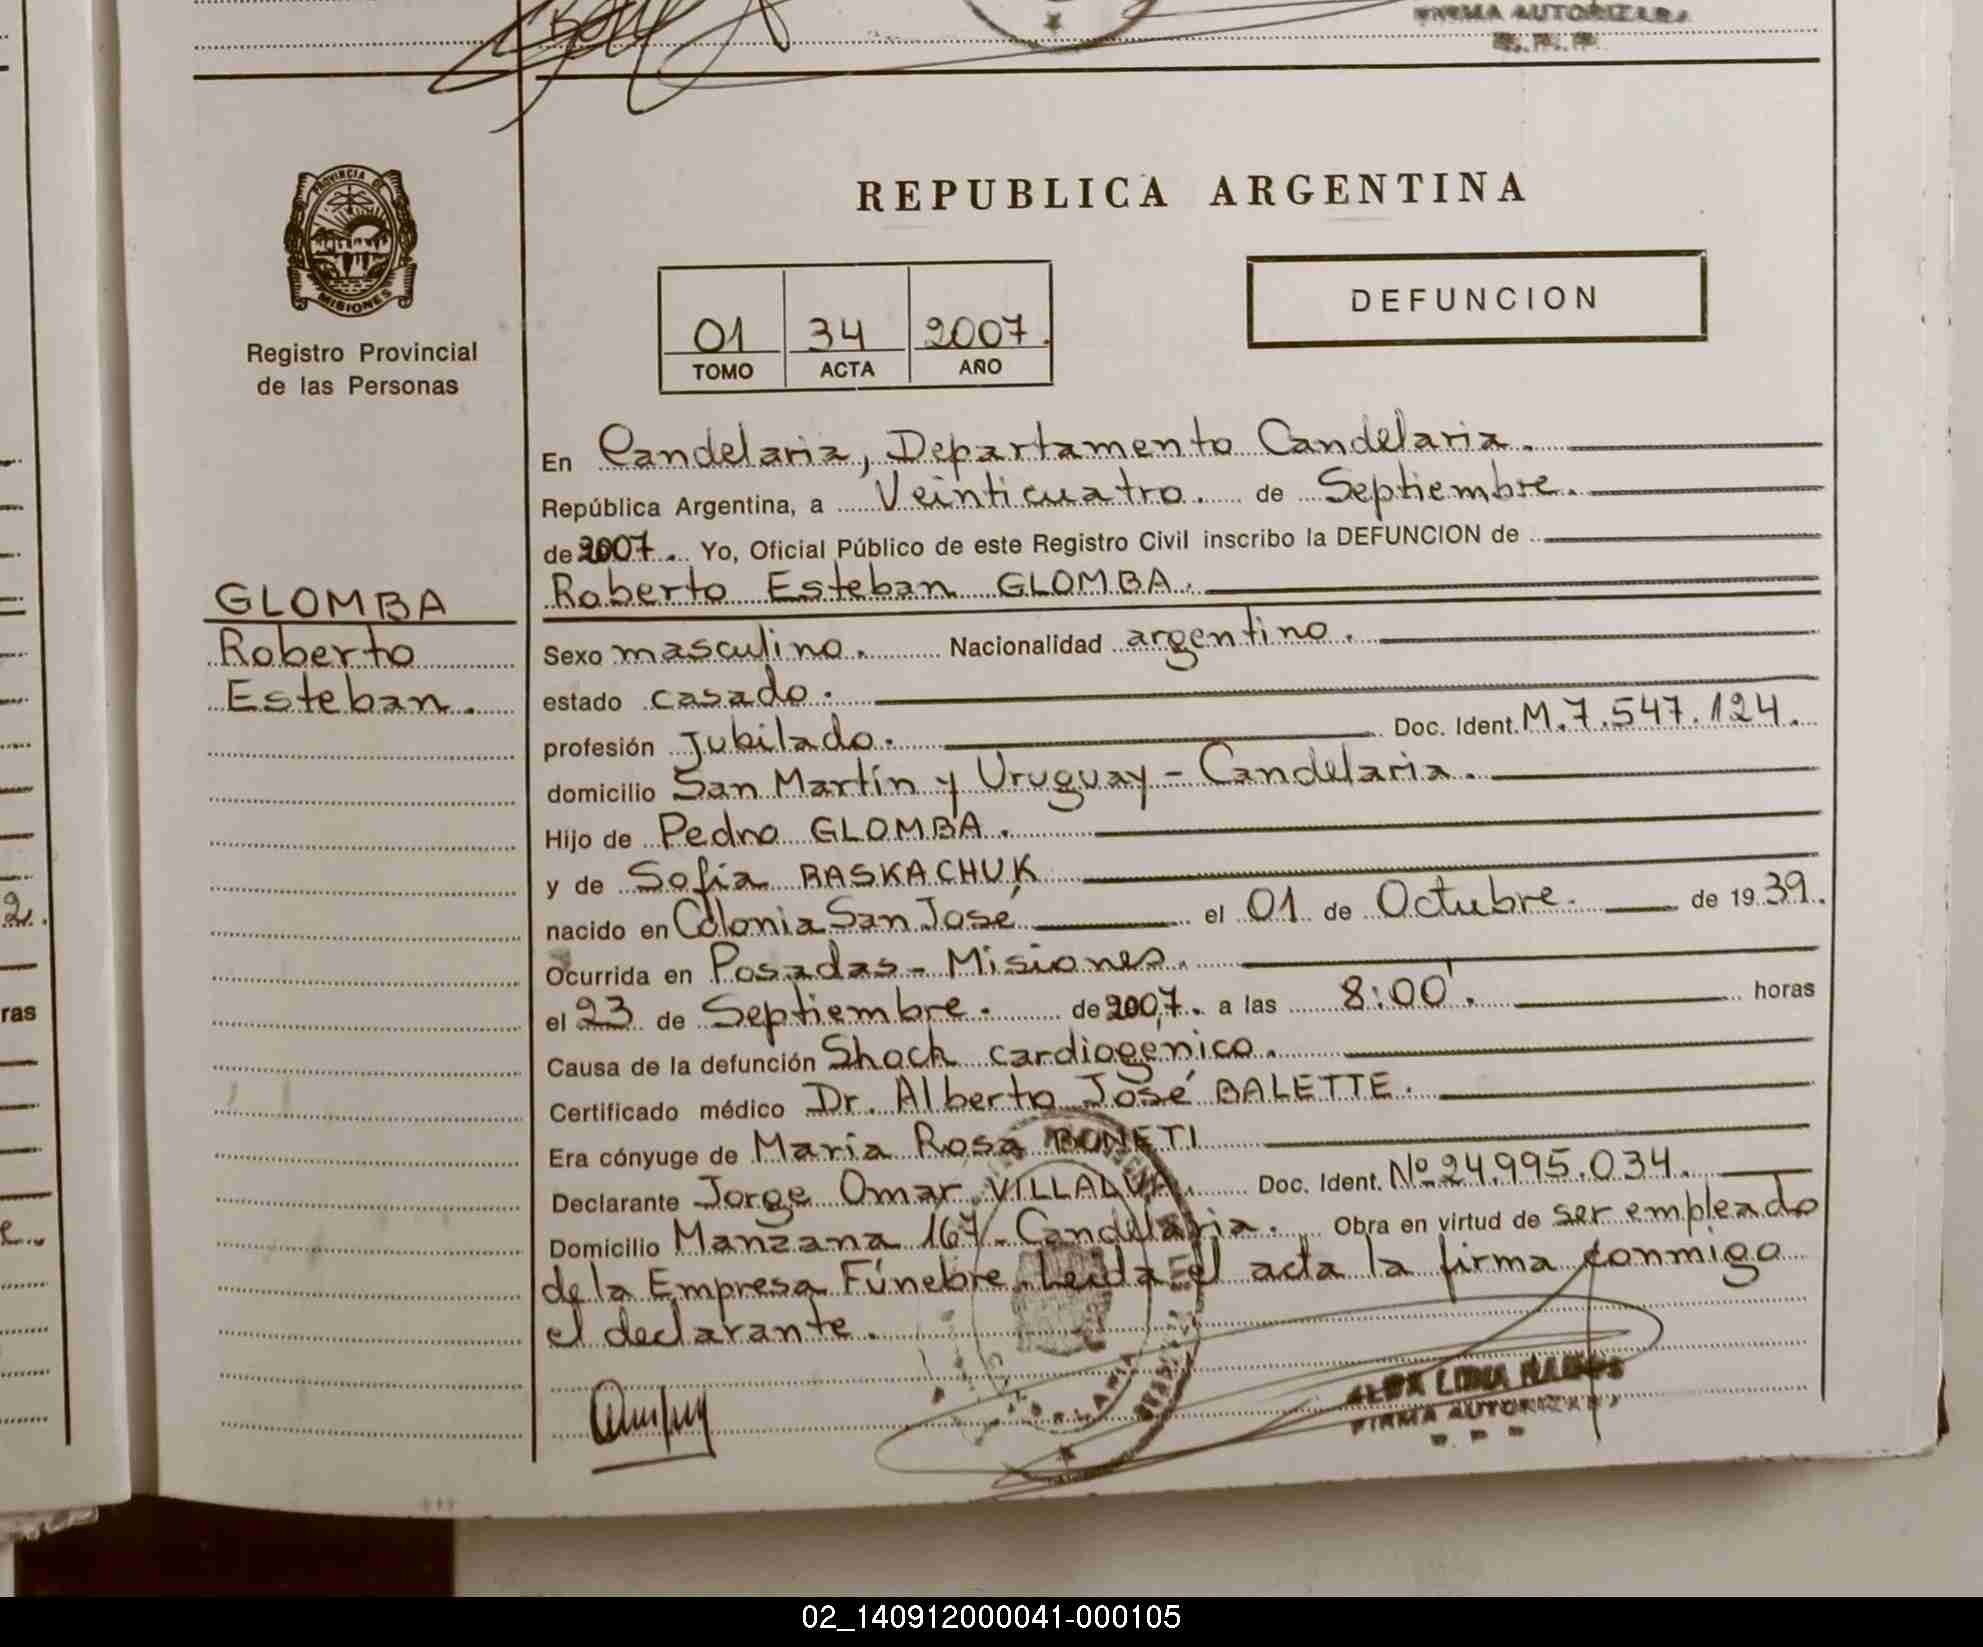 FIRMA AUTORIZADA
R. P. P.
PROVINCIA DE
MISIONES
Registro Provincial
de las Personas
REPUBLICA ARGENTINA
01 34 2007.
TOMO ACTA AÑO
DEFUNCION
En Candelaria, Departamento Candelaria.
República Argentina, a Veinticuatro. de Septiembre.
de 2007. Yo, Oficial Público de este Registro Civil inscribo la DEFUNCION de
Roberto Esteban GLOMBA.
GLOMBA
Roberto
Esteban.
Sexo masculino. Nacionalidad argentino.
estado casado.
profesión Jubilado. Doc. Ident. M.7.547.124.
domicilio San Martín y Uruguay - Candelaria.
Hijo de Pedro GLOMBA.
y de Sofía BASKACHUK
nacido en Colonia San José el 01 de Octubre. de 1939.
Ocurrida en Posadas - Misiones.
el 23 de Septiembre. de 2007. a las 8:00'. horas
Causa de la defunción Shock cardiogenico.
Certificado médico Dr. Alberto José BALETTE.
Era cónyuge de María Rosa BONETI
Declarante Jorge Omar VILLALVA. Doc. Ident. Nº 24.995.034.
Domicilio Manzana 167 - Candelaria. Obra en virtud de ser empleado
de la Empresa Fúnebre. Leida el acta la firma conmigo
el declarante.
FIRMA AUTORIZADA
2.
ras
02_140912000041-000105